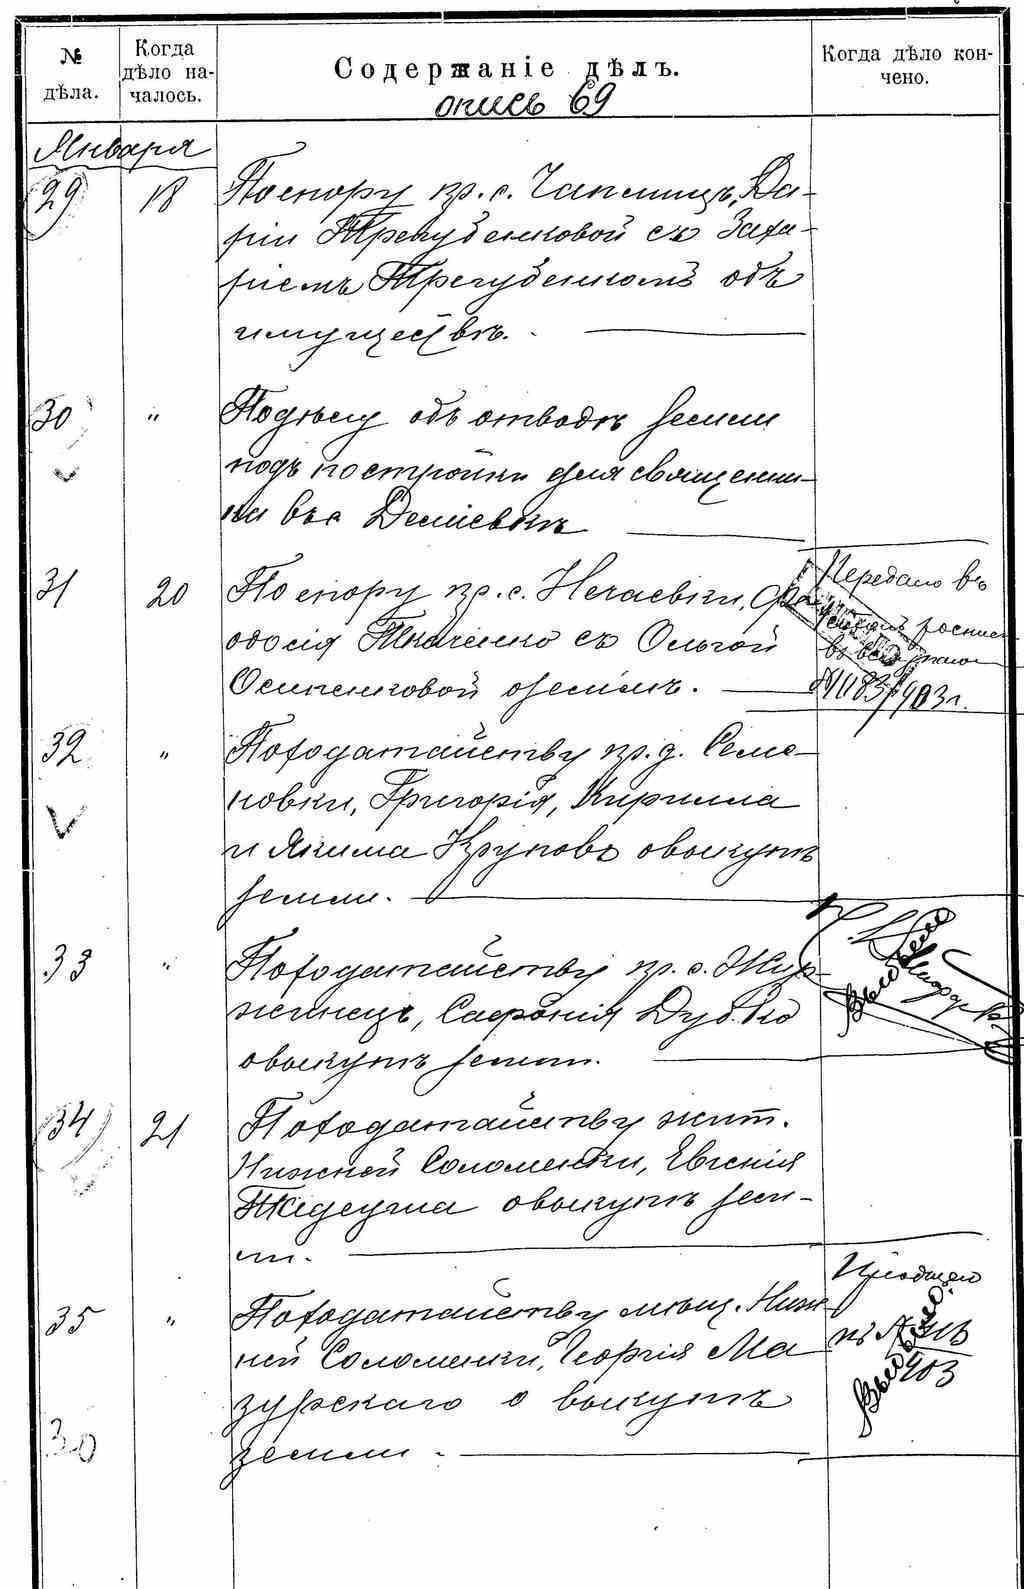 № дѣла.
Когда дѣло на-
чалось.
Содержаніе дѣлъ.
Когда дѣло кон-
чено.
опись 69
Января
29 18 По спору кр. с. Чаплищъ, Да-
ріи Трегубенковой съ Заха-
ріемъ Трегубенкомъ объ
имуществѣ.
30 " По дѣлу объ отводѣ земли
подъ постройки для священни-
ка въ с Деміевкѣ
31 20 По спору кр. с. Нечаевки, Фе-
одосія Ткаченко съ Ольгой
Осипенковой о землѣ.
Передано въ
№1183/903 г.
32 " По ходатайству кр. д. Семе-
новки, Григорія, Кирилла
и Якима Круковъ о выкупѣ
земли.
33 " По ходатайству кр. с. Жур-
жинецъ, Сафронія Дубко
о выкупѣ земли.
Выбыло
34 21 По ходатайству жит.
Нижней Соломенки, Евгенія
Тадеуша о выкупѣ зем-
ли.
35 " По ходатайству мѣщ. Ниж-
ней Соломенки, Георгія Ма
зурскаго о выкупѣ
земли.
къ №
903
Выбыло
30